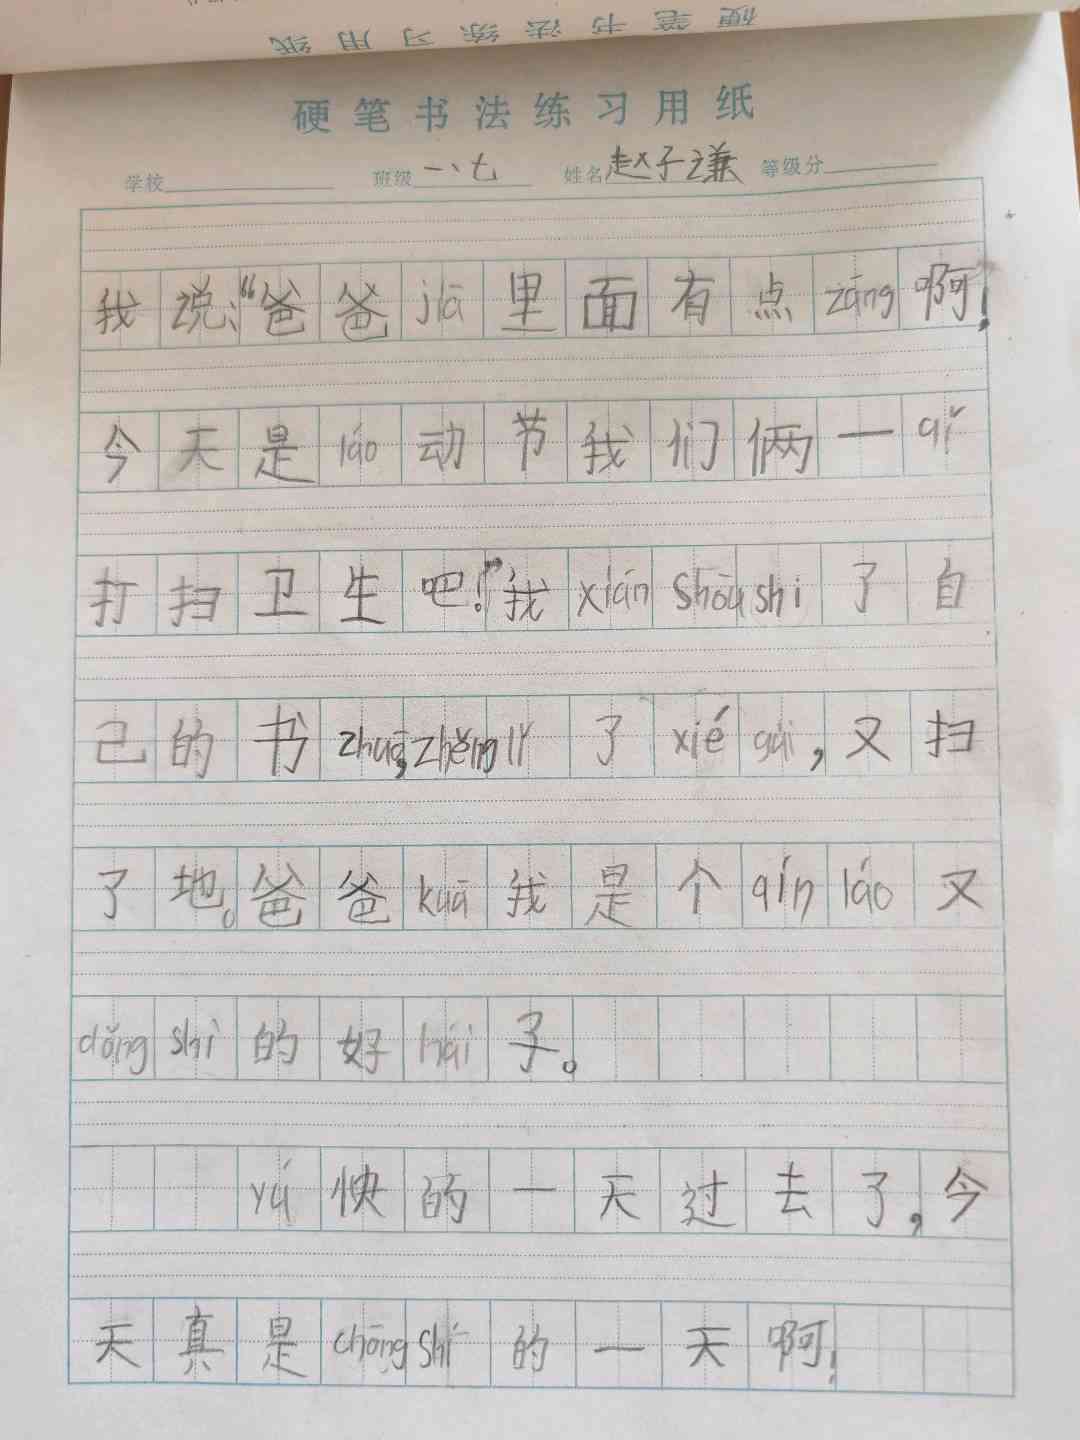 硬笔书法练习用纸
硬笔书法练习用纸
学校 班级 一、七 姓名 赵子谦 等级分
我说:“爸爸jiā里面有点zāng啊!
今天是láo动节我们俩一qǐ
打扫卫生吧!”我xiān shōu shi了自
己的书zhuō,zhěng lǐ了xié guì,又扫
了地。爸爸kuā我是个qín láo又
dǒng shì的好hái子。
yú快的一天过去了,今
天真是chōng shí的一天啊!